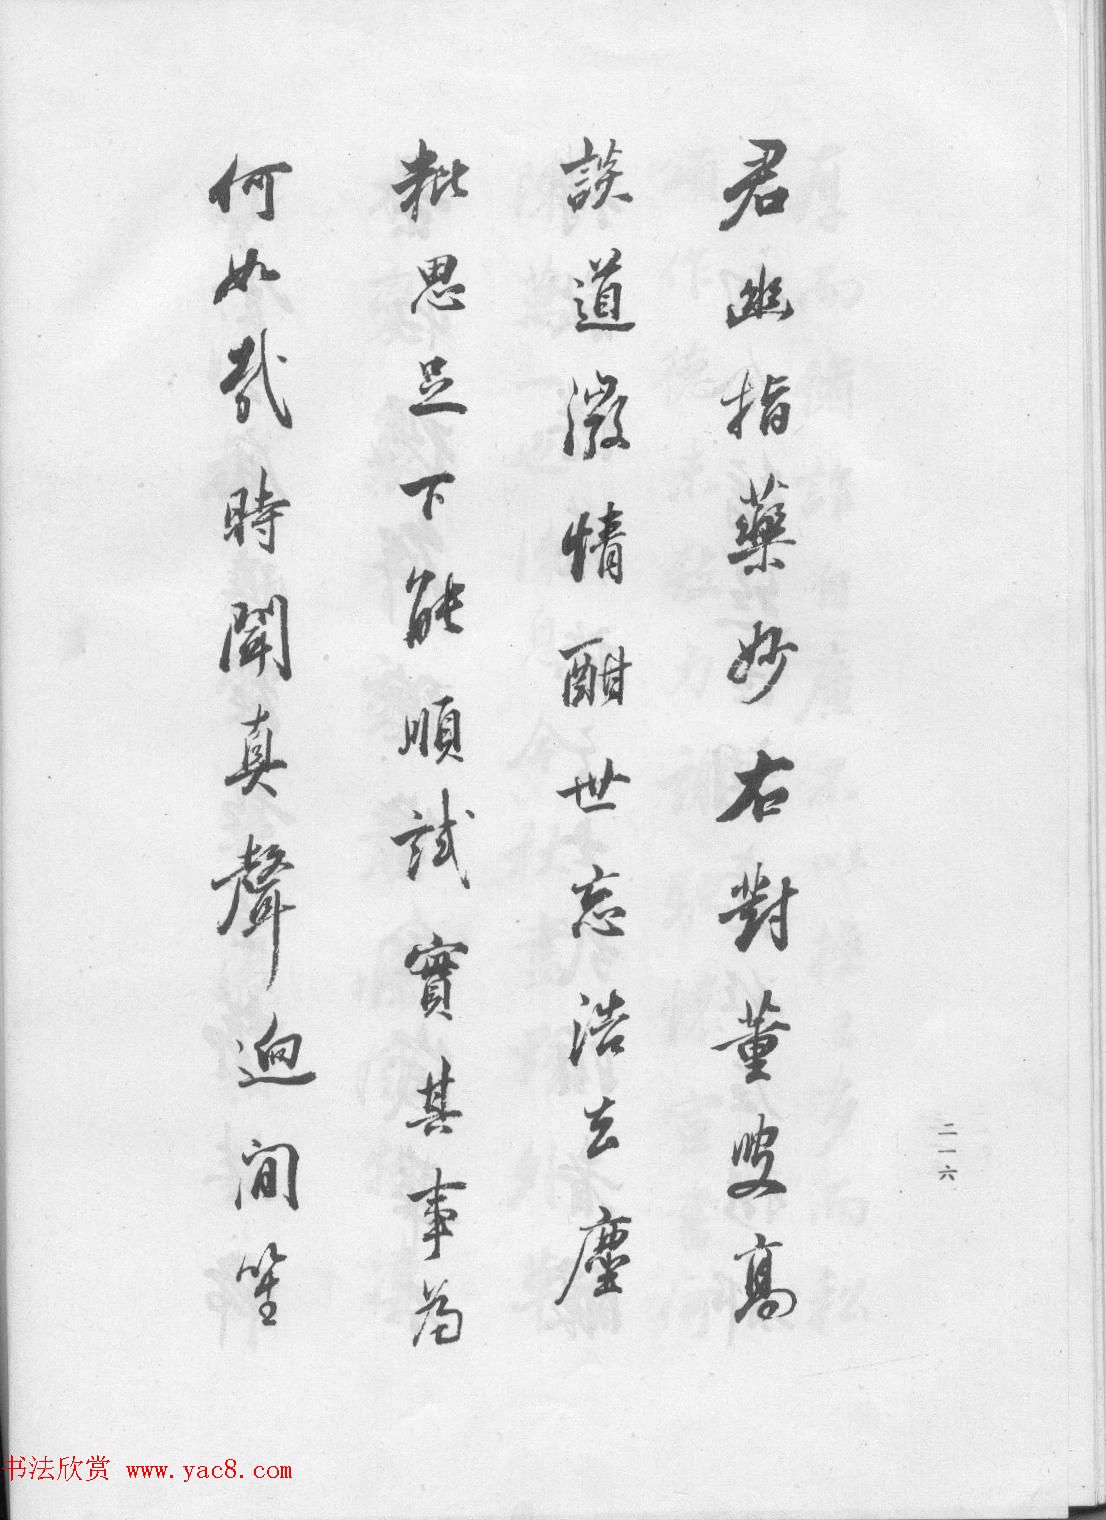 君幽指藥妙右對董叟高
談道澂情酣世忘浩去塵
粃思足下能順試實其事為
何如哉時聞真聲迥間笙
二一六
书法欣赏 www.yac8.com